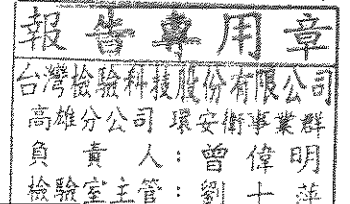 報告專用章
台灣檢驗科技股份有限公司
高雄分公司 環安衛事業群
負責人：曾偉明
檢驗室主管：劉十萍